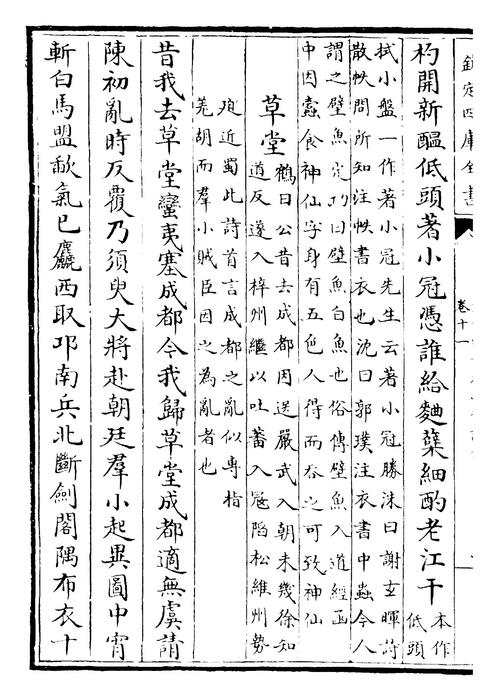 欽定四庫全書
卷十一
杓開新醖低頭著小冠憑誰給麴蘖細酌老江干
本作
低頭
拭小盤一作著小冠先生云著小冠勝洙曰謝玄暉詩
散帙問所知注帙書衣也沈曰郭璞注衣書中蟲今人
謂之壁魚定功曰壁魚白魚也俗傳壁魚入道經函
中因蠹食神仙字身有五色人得而吞之可致神仙
草堂
鶴曰公昔去成都因送嚴武入朝未幾徐知
道反遂入梓州繼以吐蕃入冦陷松維州勢
殆近蜀此詩首言成都之亂似專指
羌胡而羣小賊臣因之為亂者也
昔我去草堂蠻夷塞成都今我歸草堂成都適無虞請
陳初亂時反覆乃須臾大將赴朝廷羣小起異圖中宵
斬白馬盟歃氣已麤西取邛南兵北斷劍閣隅布衣十